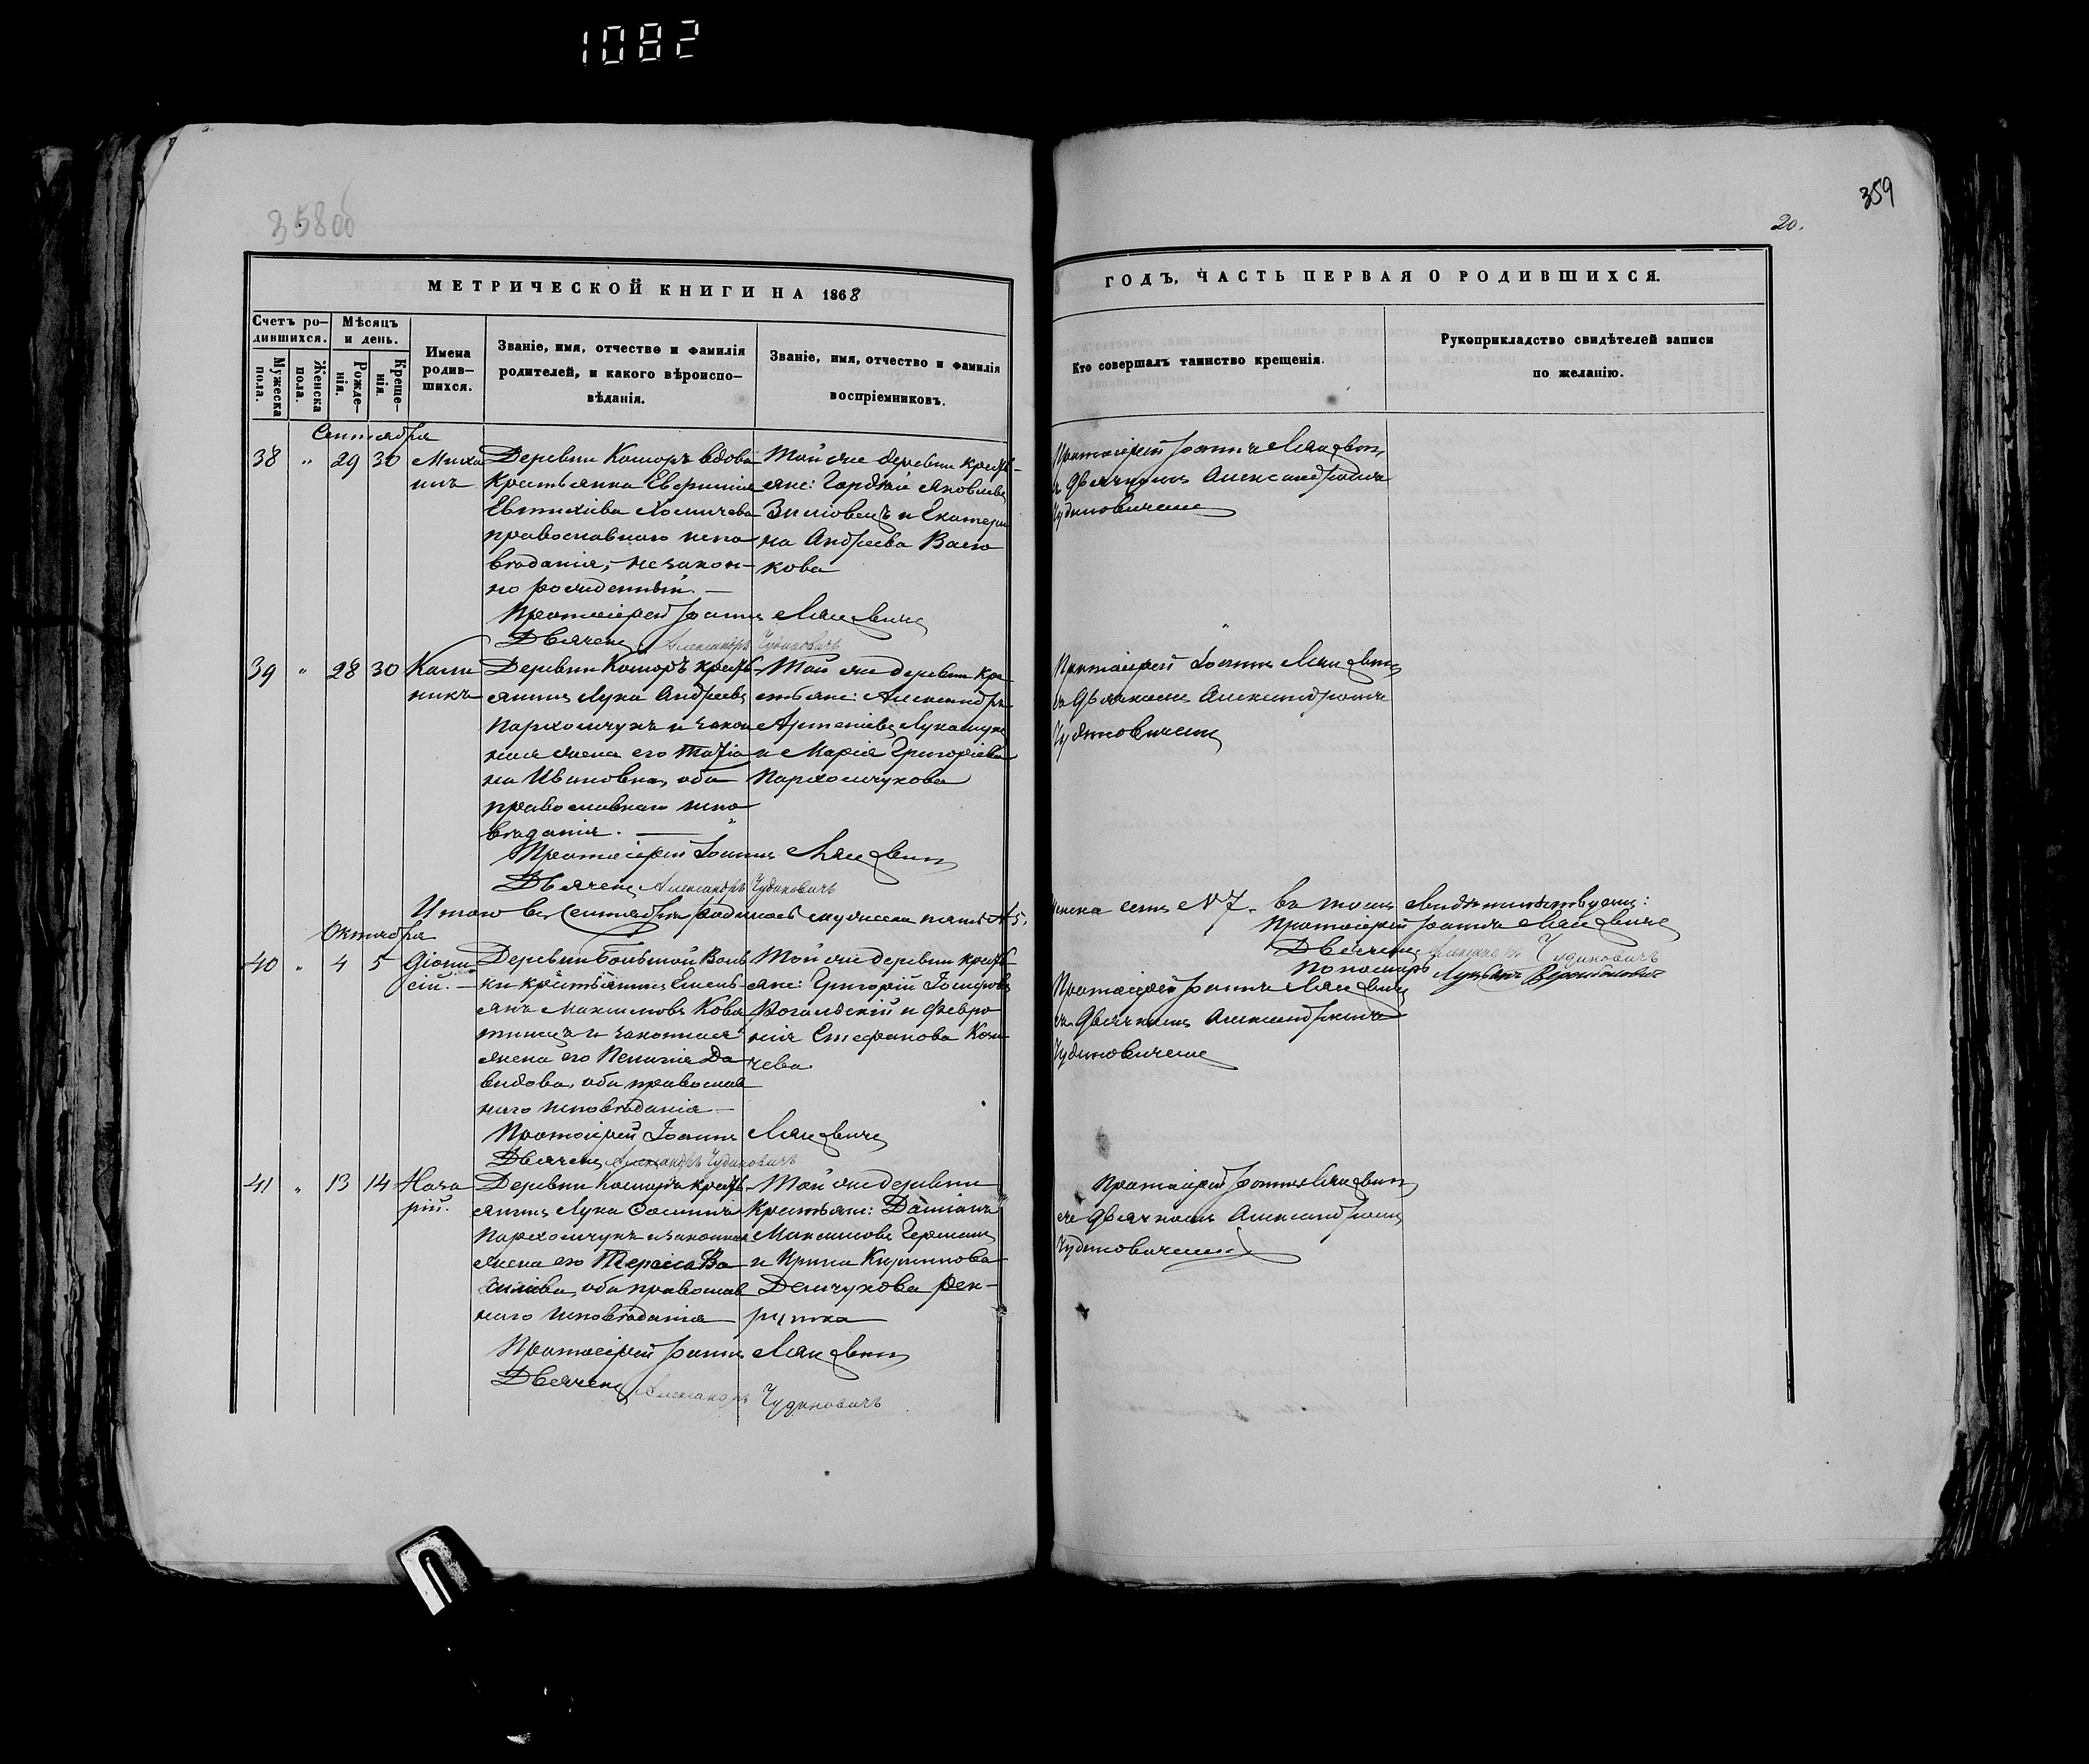 1082
358об
359
20.
МЕТРИЧЕСКОЙ КНИГИ НА 1868
ГОДЪ, ЧАСТЬ ПЕРВАЯ О РОДИВШИХСЯ.
Счетъ ро–
дившихся.
Мужеска
пола.
Женска
пола.
Мѣсяцъ
и день.
Рожде–
нія.
Креще–
нія.
Имена
родив–
шихся.
Званіе, имя, отчество и фамилія
родителей, и какого вѣроиспо–
вѣданія.
Званіе, имя, отчество и фамилія
воспріемниковъ.
Кто совершалъ таинство крещенія.
Рукоприкладство свидѣтелей записи
по желанію.
Сентября
38 " 29 30 Миха
илъ
Деревни Коморъ вдова
крестьянка
православнаго испо
вѣданія, незакон–
но рожденный. —
Протоіерей Іоаннъ
Дьячекъ Александръ Чудиновичъ
Той же деревни кресть–
яне: Яковлевъ
и Екатери
на Андреева
кова
Протоіерей Іоаннъ
съ дьячкомъ Александромъ
Чудиновичемъ
39 " 28 30 Кали
никъ
Деревни Коморъ кресть
янинъ Лука Андреевъ
Пархомчукъ и закон
ная жена его Татіа
на Ивановна, оба
православнаго испо
вѣданія. —
Протоіерей Іоаннъ
Дьячекъ Александръ Чудиновичъ
Той же деревни кре
стьяне: Александръ
Лукашукъ
и Марія Григоріева
Пархомчукова
Протоіерей Іоаннъ
съ дьячкомъ Александромъ
Чудиновичемъ
Итого въ Сентябрѣ родилось мужеска пять № 5,
женска семь № 7. въ томъ свидѣтельствуемъ:
Протоіерей Іоаннъ
Дьячекъ Александръ Чудиновичъ
Пономарь
Октября
40 " 4 5 Діони
сій. —
Деревни Большой Воль
ки крестьянинъ Емель
янъ Максимовъ
и законная
жена его Пелагія Да
видова, оба православ
наго исповѣданія —
Протоіерей Іоаннъ
Дьячекъ Александръ Чудиновичъ
Той же деревни кресть
яне: Григорій Іосифовъ
и Февро
нія Стефанова
чева.
Протоіерей Іоаннъ
съ дьячкомъ Александромъ
Чудиновичемъ
41 " 13 14 Наза
рій.
Деревни Коморъ кресть
янинъ Лука
Пархомчукъ и законная
жена его Ва
силіева, оба православ
наго исповѣданія
Протоіерей Іоаннъ
Дьячекъ Александръ Чудиновичъ
Той же деревни
крестьяне: Даміанъ
Максимовъ
и Ирина Кирилова
Демчукова рек–
рутка
Протоіерей Іоаннъ
съ дьячкомъ Александромъ
Чудиновичемъ